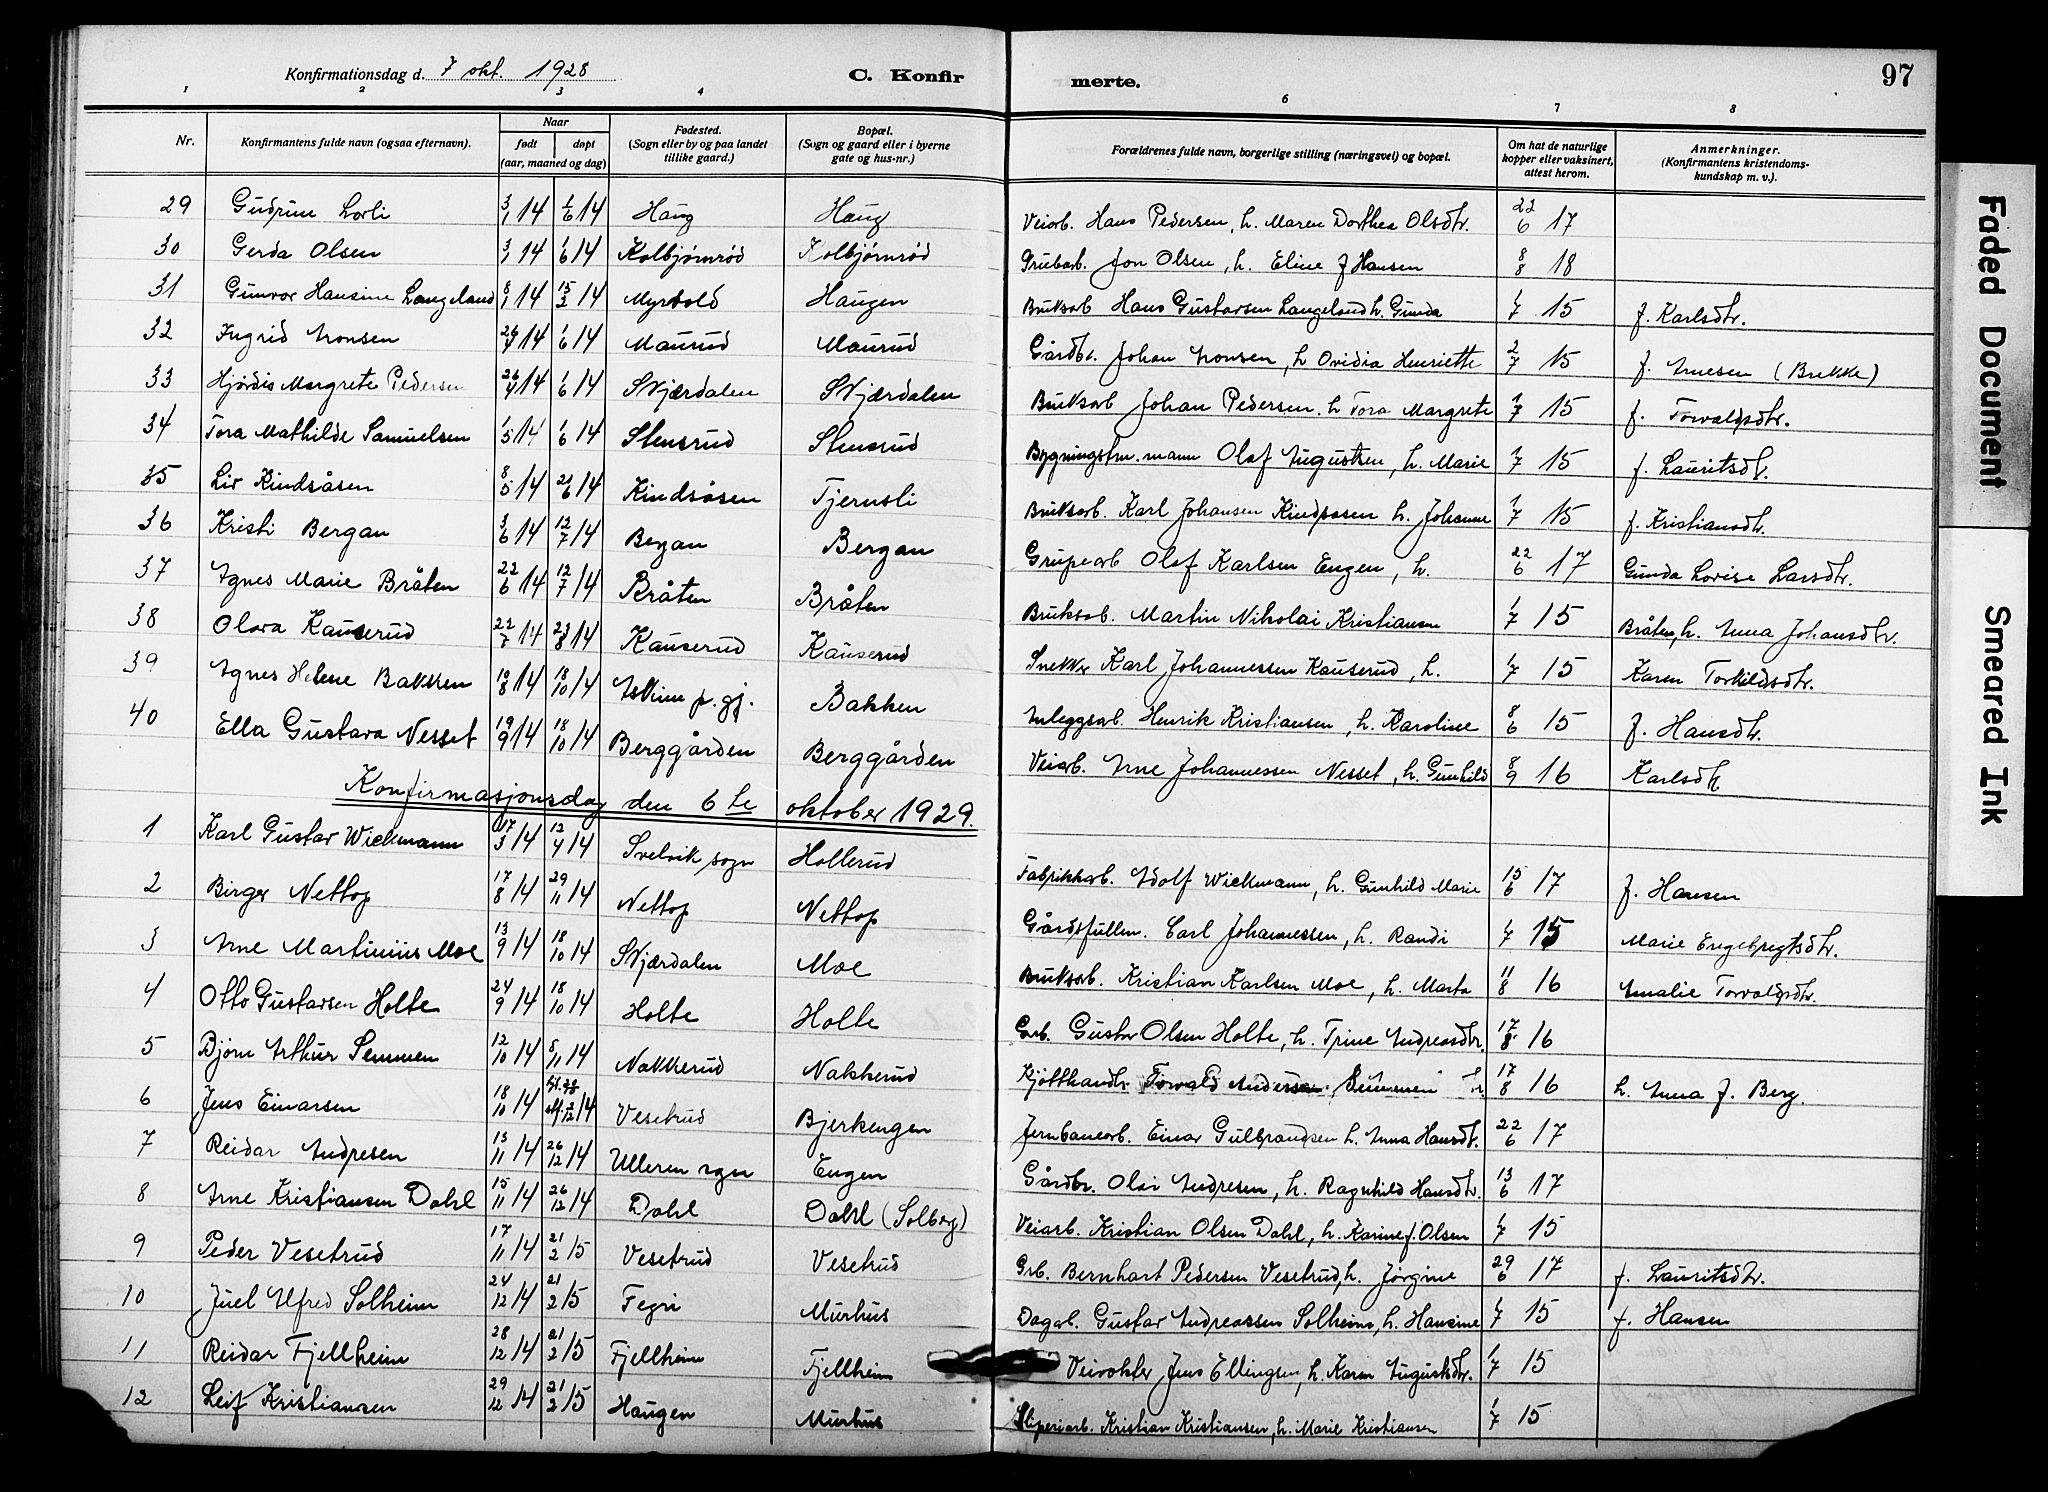 Konfirmationsdag d. 7 okt. 1928 C. Konfirmerte. 97
1 2 3 4 5 6 7 8
Nr. Konfirmantens fulde navn (ogsaa efternavn). Naar født døpt (aar, maaned og dag) Fødested. (Sogn eller by og paa landet tillike gaard.) Bopæl. (Sogn og gaard eller i byerne gate og hus-nr.) Forældrenes fulde navn, borgerlige stilling (næringsvei) og bopæl. Om hat de naturlige kopper eller vaksinert, attest herom. Anmerkninger. (Konfirmantens kristendomskundskap m. v.).
29 Gudrun Lorli 3/1 14 1/6 14 Haug Haug Veiarb. Hans Pedersen, h. Maren Dorthea Olsdtr. 22/6 17
30 Gerda Olsen 3/1 14 1/6 14 Kolbjørnrød Kolbjørnrød Grubarb. Jon Olsen, h. Eline f Hansen 8/8 18
31 Gunvor Hansine Langeland 8/1 14 15/2 14 Myrvold Haugen Bruksarb Hans Gustavsen Langeland h. Gunda 1/7 15 f. Karlsdtr.
32 Ingrid Aronsen 26/4 14 1/6 14 Maurud Maurud Gårdbr. Johan Aronsen, h Ovidia Henriette 2/7 15 f. Arnesen (Brekke)
33 Hjørdis Margrete Pedersen 26/4 14 1/6 14 Skjærdalen Skjærdalen Bruksarb Johan Pedersen. h Tora Margrete 1/7 15 f. Torvaldsdtr.
34 Tora Mathilde Samuelsen 1/5 14 1/6 14 Stensrud Stensrud Bygningstm.mann Olaf Augustsen, h. Marie 1/7 15 f. Lauritsdtr.
35 Liv Kindsåsen 8/5 14 21/6 14 Kindsåsen Tjernsli Bruksarb. Karl Johansen Kindsåsen h. Johanne 1/7 15 f. Kristiansdtr.
36 Kristi Bergan 3/6 14 12/7 14 Bergan Bergan Grupearb Olaf Karlsen Engen, h. 22/6 17 Gunda Lovise Larsdtr.
37 Agnes Marie Bråten 22/6 14 12/7 14 Bråten Bråten Bruksarb. Martin Nikolai Kristiansen 1/7 15 Bråten, h. Anna Johansdtr.
38 Olava Kauserud 22/7 14 23/8 14 Kauserud Kauserud Snekker Karl Johannessen Kauserud, h. 1/7 15 Karen Torkildsdtr.
39 Agnes Helene Bakken 10/8 14 18/10 14 Askim p.gj. Bakken Anleggsarb. Henrik Kristiansen, h. Karoline 8/6 15 f. Hansdtr.
40 Ella Gustava Nesset 19/9 14 18/10 14 Berggården Berggården Veiarb. Arne Johannessen Nesset, h. Gunhild 8/9 16 Karlsdtr
Konfirmasjonsdag den 6te oktober 1929.
1 Karl Gustav Wickmann 17/3 14 12/4 14 Svelvik sogn Hollerud Fabrikkarb. Adolf Wickmann, h. Gunhild Marie 15/6 17 f. Hansen
2 Birger Nettop 17/8 14 29/11 14 Nettop Nettop Gårdsfullm. Carl Johannessen, h. Randi 1/7 15 Marie Engebregtsdtr.
3 Arne Martinius Moe 13/9 14 18/10 14 Skjærdalen Moe Bruksarb. Kristian Karlsen Moe, h. Marta 11/8 16 Amalie Torvaldsdtr.
4 Otto Gustavsen Holte 24/9 14 18/10 14 Holte Holte Garb. Gustav Olsen Holte, h. Trine Andreasdtr. 17/8 16
5 Bjørn Arthur Semmen 12/10 14 8/11 14 Nakkerud Nakkerud Kjøtthandlr. Torvald Andersen Semmen 17/8 16 h. Anna f. Berg.
6 Jens Einarsen 18/10 14 14 Vesetrud Bjerkengen Jernbanearb. Einar Gulbrandsen h. Anna Hansdtr. 22/6 17
7 Reidar Andresen 13/11 14 26/12 14 Ulleren sogn Engen Gårdbr. Olai Andresen, h. Ragnhild Hansdtr. 13/6 17
8 Arne Kristiansen Dahl 15/11 14 26/12 14 Dahl Dahl (Solberg) Veiarb. Kristian Olsen Dahl, h. Karine f. Olsen 1/7 15
9 Peder Vesetrud 17/11 14 21/2 15 Vesetrud Vesetrud Grb. Bernhart Pedersen Vesetrud, h. Jørgine 29/6 17 f. Lauritsdtr.
10 Juel Alfred Solheim 24/12 14 21/2 15 Tegri Murhus Dagarb. Gustav Andreassen Solheim, h. Hansine 1/7 15 f. Hansen
11 Reidar Fjellheim 28/12 14 21/2 15 Fjellheim Fjellheim Veivokter Jens Ellingsen, h. Karen Augustsdtr. 1/7 15
12 Leif Kristiansen 29/12 14 21/2 15 Haugen Murhus Sliperiarb. Kristian Kristiansen, h. Marie Kristiansen 1/7 15
Faded Document
Smeared Ink